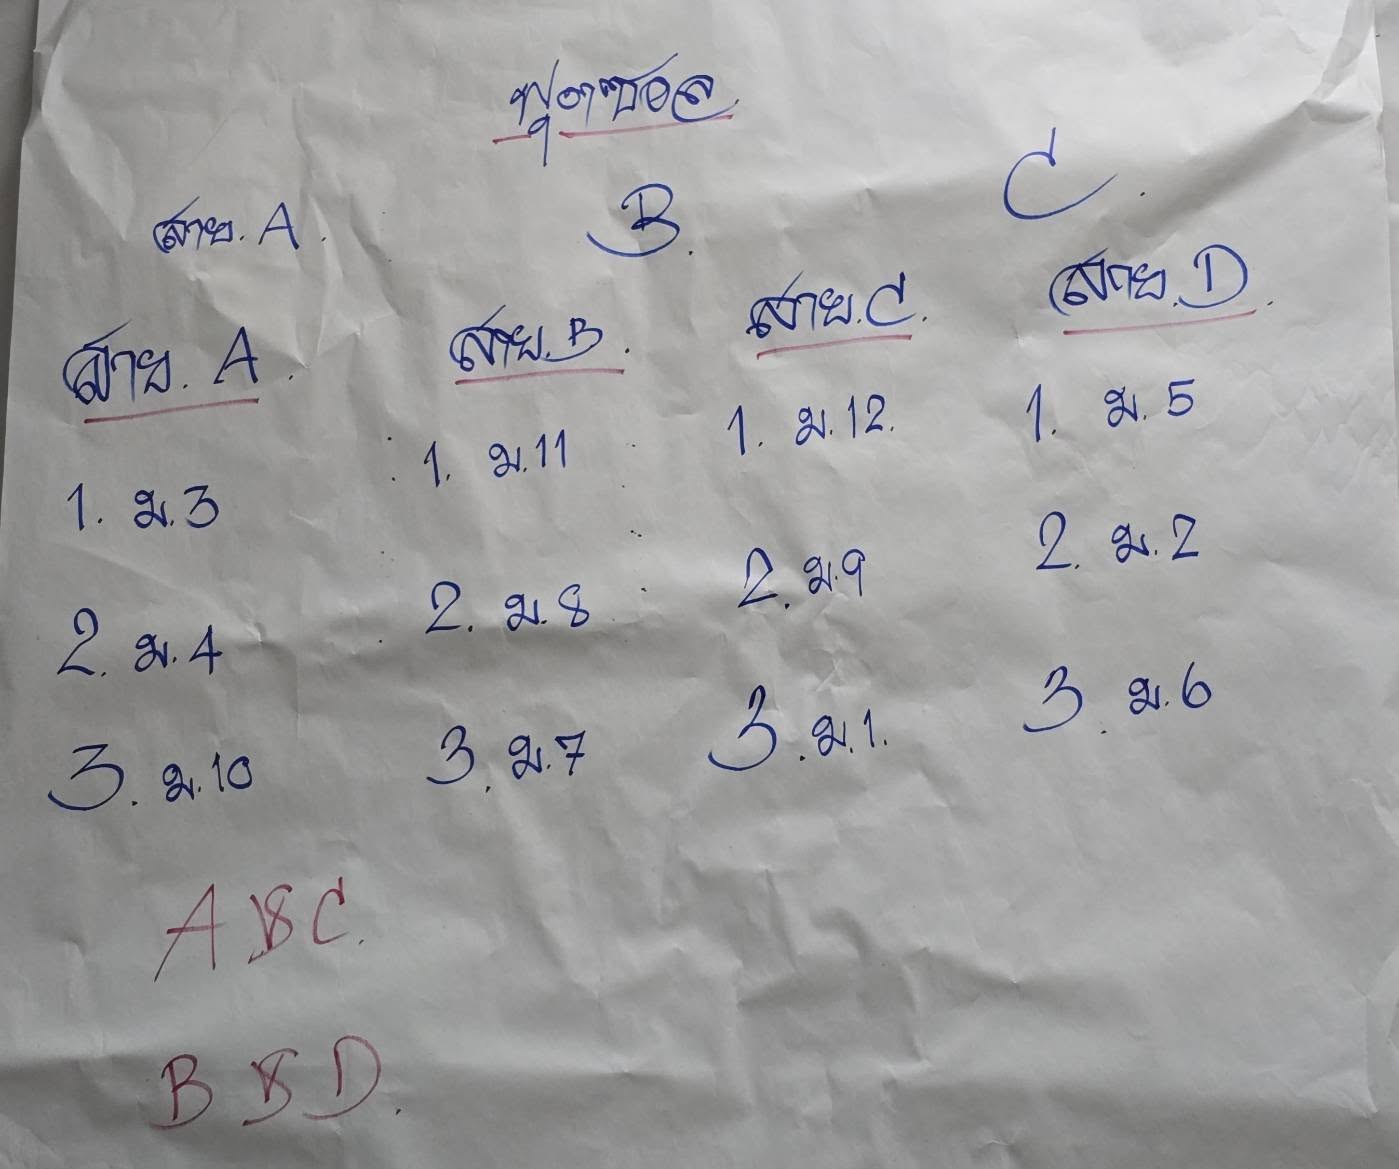 ฟุตซอล
สาย. A. B. C.
สาย. A. สาย. B. สาย. C. สาย. D.
1. ม.3 1. ม.11 1. ม.12. 1. ม.5
2. ม.4 2. ม.8 2. ม.9 2. ม.2
3. ม.10 3. ม.7 3. ม.1. 3. ม.6
A VS C.
B VS D.